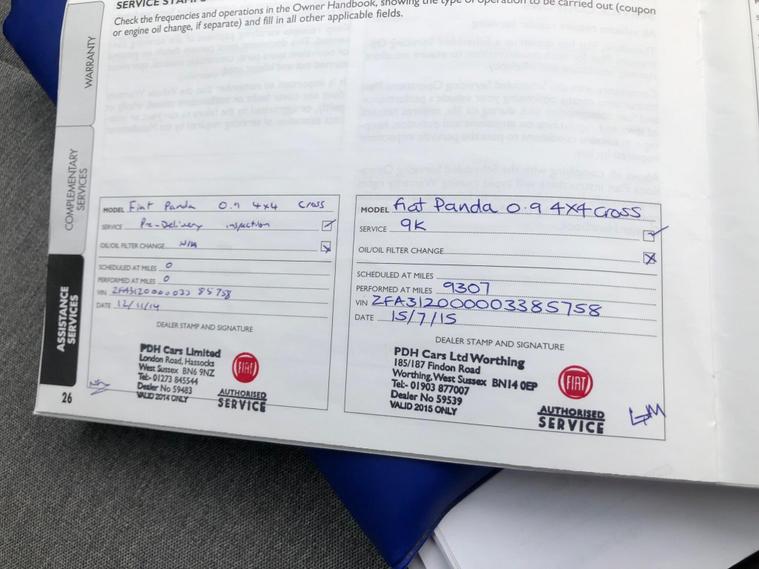 Check the frequencies and operations in the Owner Handbook, showing the type of operation to be carried out (coupon
or engine oil change, if separate) and fill in all other applicable fields.
WARRANTY
COMPLEMENTARY
SERVICES
ASSISTANCE
SERVICES
26
MODEL Fiat Panda 0.9 4x4 Cross
SERVICE Pre-Delivery inspection
OIL/OIL FILTER CHANGE N/A
SCHEDULED AT MILES 0
PERFORMED AT MILES 0
VIN ZFA3120000033 85758
DATE 12/11/14
DEALER STAMP AND SIGNATURE
PDH Cars Limited
London Road, Hassocks
West Sussex BN6 9NZ
Tel:- 01273 845544
Dealer No 59483
VALID 2014 ONLY
FIAT
AUTHORISED
SERVICE
MODEL Fiat Panda 0.9 4X4 Cross
SERVICE 9K
OIL/OIL FILTER CHANGE
SCHEDULED AT MILES
PERFORMED AT MILES 9307
VIN ZFA31200003385758
DATE 15/7/15
DEALER STAMP AND SIGNATURE
PDH Cars Ltd Worthing
185/187 Findon Road
Worthing, West Sussex BN14 0EP
Tel:- 01903 877007
Dealer No 59539
VALID 2015 ONLY
FIAT
AUTHORISED
SERVICE